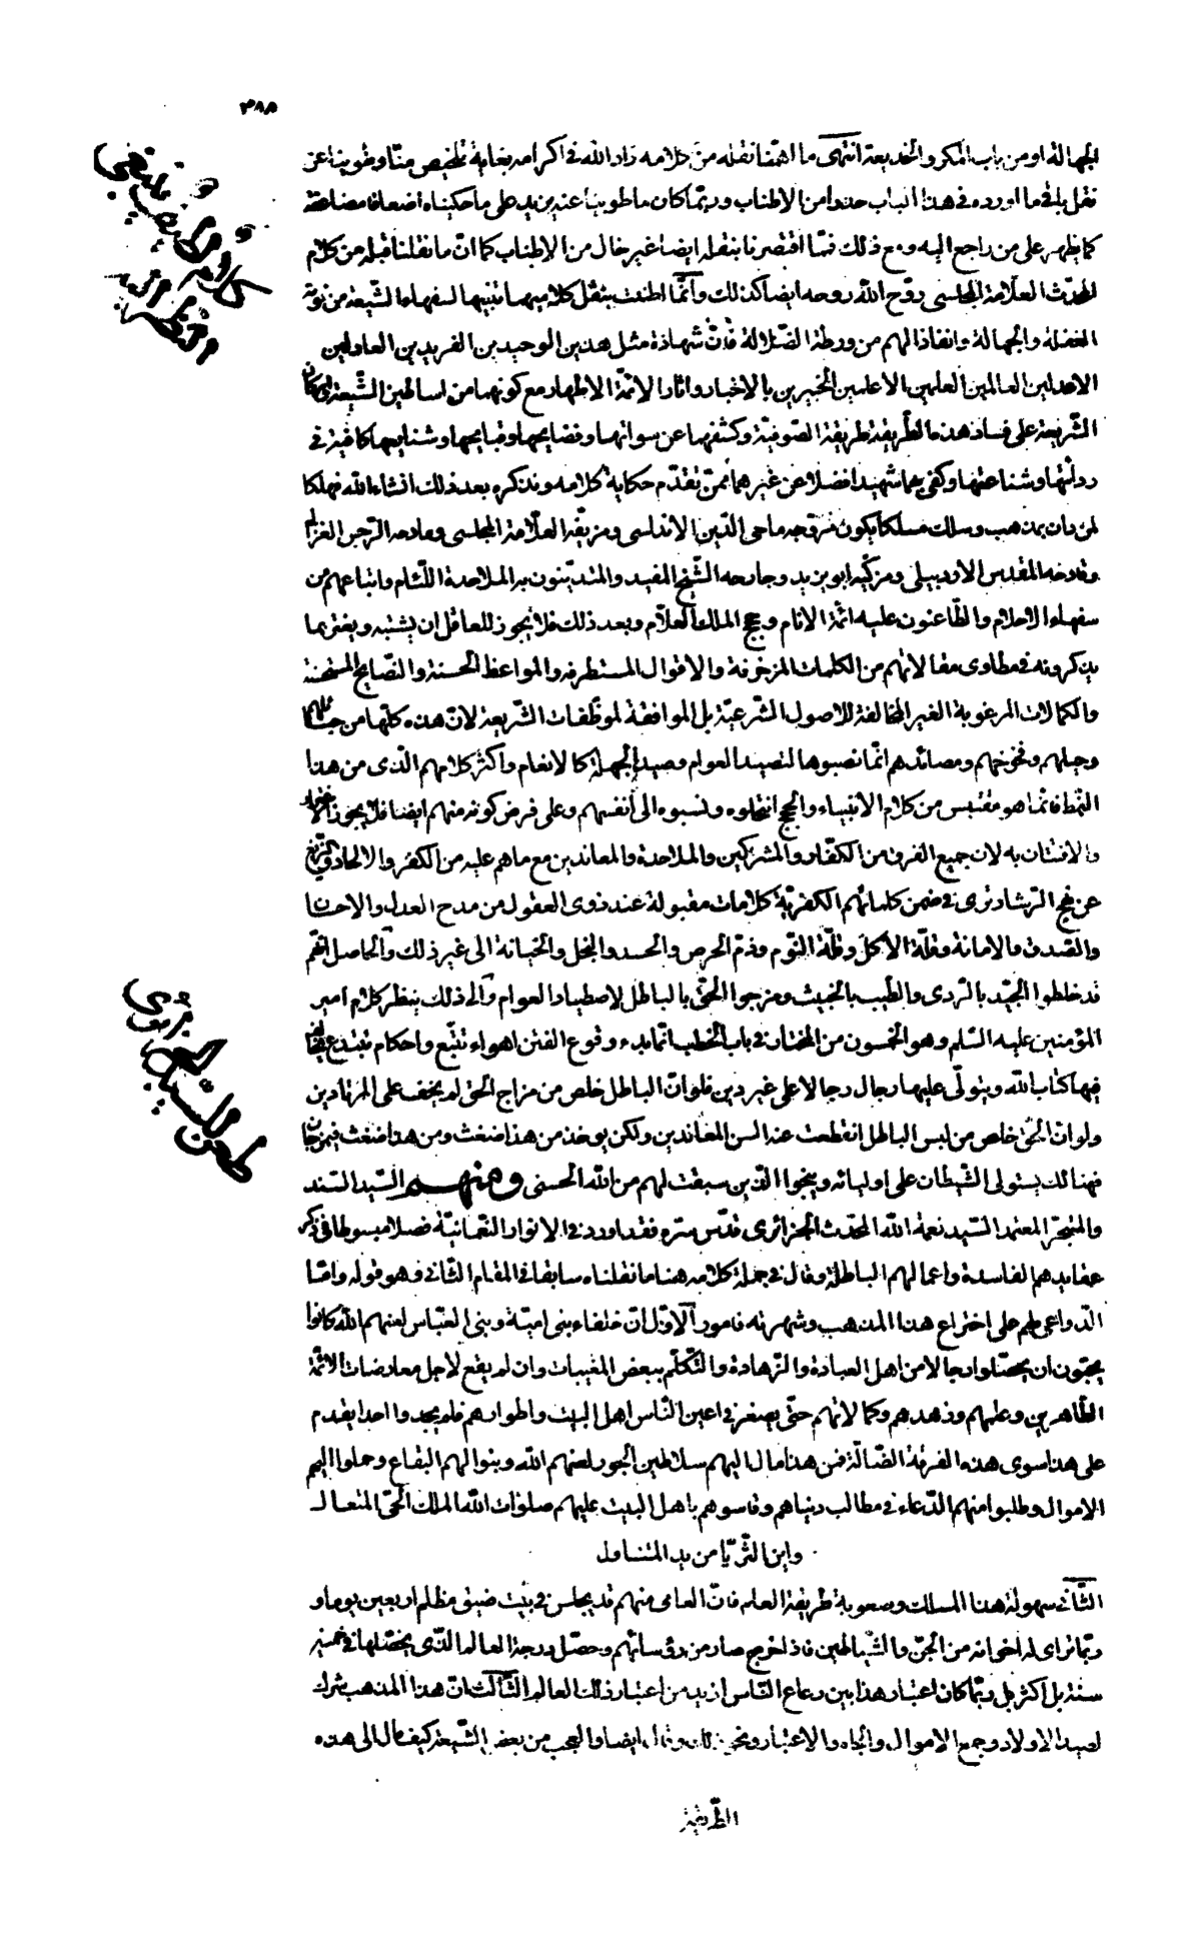 ٣٨٨
الجهالة او من باب المكر والخديعة انتهى ما اهمّنا نقله من كلامه زاد الله فى اكرامه بغاية تلخيص منّا وطوينا عن
نقل باقى ما اورده فى هذا الباب حذرا من الاطناب وربّما كان ما طوينا عنه يزيد على ما حكيناه اضعافا مضاعفة
كما يظهر على من راجع اليه ومع ذلك فما اقتصرنا بنقله ايضا غير خال من الاطناب كما انّ ما نقلنا قبله من كلام
المحدّث العلّامة المجلسى روّح الله روحه ايضا كذلك وانّما اطنبت بنقل كلاميهما تنبيها لسفهاء الشّيعة من نومة
الغفلة والجهالة وانقاذا لهم من ورطة الضّلالة فانّ شهادة مثل هذين الوحيدين الفريدين العادلين
الاعدلين العالمين العلمين الاعلمين الخبيرين بالاخبار واثار الائمّة الاطهار مع كونهما من اساطين الشّيعة واركان
الشّريعة على فساد هذه الطّريقة طريقة الصّوفيّة وكشفهما عن سوائتها وفضايحها وقبايحها وشنايعها كافية فى
ردائتها وشناعتها وكفى بهما شهيدا فضلا عن غيرهما ممّن تقدّم حكاية كلامه ونذكره بعد ذلك انشاء الله فهلكا
لمن دان بمذهب وسلك مسلكا يكون مروّجه ماحى الدّين الاندلسى ومزيّفه العلّامة المجلسى ومادحه الرّجس الغزالى
وقادحه المقدس الاردبيلى ومزكّيه ابو يزيد وجارحه الشّيخ المفيد والمتديّنون به الملاحدة اللّئام واتباعهم من
سفهاء الاحلام والطّاعنون عليه ائمّة الانام وحجج الملك العلّام وبعد ذلك فلا يجوز للعاقل ان يشتبه ويغترّ بما
يذكرونه فى مطاوى مقالاتهم من الكلمات المزخرفة والاقوال المستطرفه والمواعظ الحسنة والنّصايح المستحسنة
والكمالات المرغوبة الغير المخالفة للاصول الشّرعيّة بل الموافقة لموظّفات الشّريعة لانّ هذه كلّها من حبائلهم
وحيلهم وفخوخهم ومصائدهم انّما نصبوها لتصيد العوام وصيد الجهلة كالانعام واكثر كلامهم الذى من هذا
النمط فانّما هو مقتبس من كلام الانبياء والحجج انتحلوه ونسبوه الى انفسهم وعلى فرض كونه منهم ايضا فلا يجوز الاغترار
والافتتان به لان جميع الفرق من الكفّار والمشركين والملاحدة والمعاندين مع ماهم عليه من الكفر والالحاد والزّيغ
عن نهج الرّشاد ترى فى ضمن كلماتهم الكفريّة كلامات مقبولة عند ذوى العقول من مدح العدل والاحسان
والصدق والامانة وقلّة الاكل وقلّة النّوم وذمّ الحرص والحسد والبخل والخيانة الى غير ذلك والحاصل انّهم
قد خلطوا الجيّد بالرّدى والطّيب بالخبيث ومزجوا الحقّ بالباطل لاصطياد العوام والى ذلك ينظر كلام امير
المؤمنين عليه السّلم وهو الخمسون من المختار فى باب الخطب انّما بدء وقوع الفتن اهواء تتّبع واحكام تبتدع يخالف
فيها كتاب الله ويتولّى عليها رجال رجالا على غير دين فلو انّ الباطل خلص من مزاج الحق لم يخف على المرتادين
ولو انّ الحقّ خلص من لبس الباطل انقطعت عنه السن المعاندين ولكن يوخذ من هذا ضغث ومن هذا ضغث فيمزجان
فهنالك يستولى الشّيطان على اوليائه وينجوا الّذين سبقت لهم من الله الحسنى ومنهم السّيد السّند
والمتبحّر المعتمد السّيد نعمة الله المحدّث الجزائرى قدّس سره فقد اورد فى الانوار النّعمانيّة فصلا مبسوطا فى ذكر
عقايدهم الفاسدة واعمالهم الباطلة وقال فى جملة كلامه هنا ما نقلناه سابقا فى المقام الثّانى وهو قوله وامّا
الدّواعى لهم على اختراع هذا المذهب وشهرته فامور الاوّل انّ خلفاء بنى اميّة وبنى العبّاس لعنهم الله كانوا
يحبّون ان يحصّلوا رجالا من اهل العبادة والزّهادة والتّكلّم ببعض المغيبات وان لم يقع لاجل معارضات الائمّة
الطّاهرين وعلمهم وزهدهم وكمالاتهم حتّى يصغر فى اعين النّاس اهل البيت واطوارهم فلم يجدوا احدا يقدم
على هذا سوى هذه الفرقة الضّالّة فمن هذا مال اليهم سلاطين الجور لعنهم الله وبنوا لهم البقاع وحملوا اليهم
الاموال وطلبوا منهم الدّعاء فى مطالب دنياهم وقاسوهم باهل البيت عليهم صلوات الله الملك الحقّ المتعال
واين الثّريّا من يد المتناول
الثّانى سهولة هذا المسلك وصعوبة طريقة العلم فانّ العامى منهم قد يجلس فى بيت ضيق مظلم اربعين يوما و
ربّما ترائى له اخوانه من الجنّ والشّياطين فاذا خرج صار من رؤسائهم وحصّل درجة العالم الّذى يحصّلها فى خمسين
سنة بل اكثر بل ربّما كان اعتبار هذا بين رعاع النّاس ازيد من اعتبار ذلك العالم الثّالث انّ هذا المذهب شرك
لصيد الاولاد وجمع الاموال والجاه والاعتبار ونحو ذلك وقال ايضا والعجب من بعض الشّيعة كيف مال الى هذه
الطّريقة
طعن السيد الجزائرى